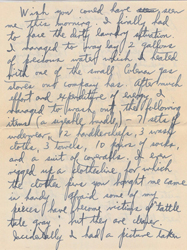 Wish you could have seen
me this morning. I finally had
to face the dirty laundry situation.
I managed to 2 gallons
of precious water which I heated
with one of the small Coleman gas
stoves our company has. After much
effort and expenditure of energy I
managed to the following
items (a sizeable bundle) - 7 sets of
underwear, 12 handkerchiefs, 3 wash
cloths, 3 towels, 10 pairs of socks,
and a suit of coveralls. I even
rigged up a clothesline for which
the clothes pins you bought me came
in handy. Afraid some of my
pieces have become victims of tattle
tale gray; but they are clean.
Incidentally I had a picture taken